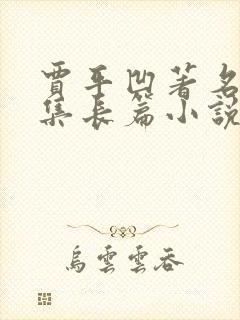 賈平凹著名
集長篇小說
烏雲雲吞